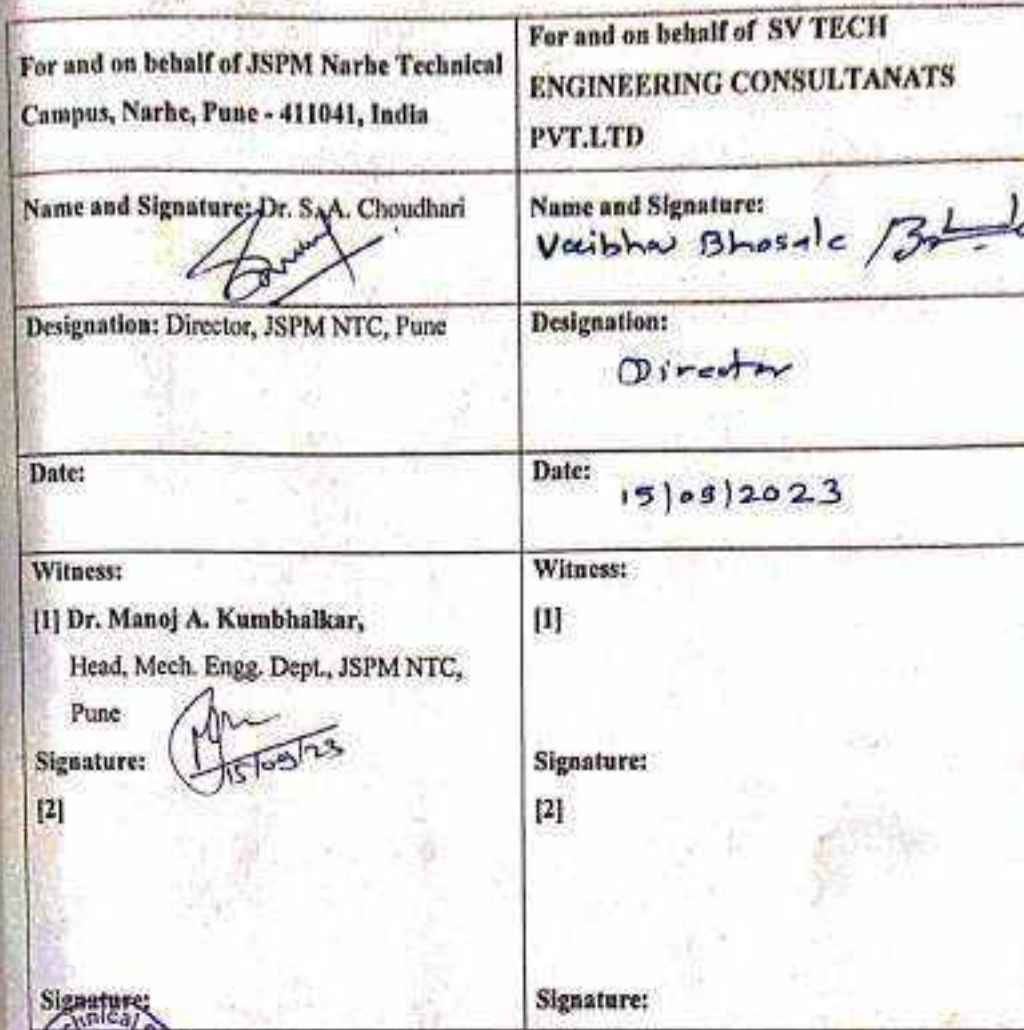 For and on behalf of JSPM Narhe Technical
Campus, Narhe, Pune - 411041, India
For and on behalf of SV TECH
ENGINEERING CONSULTANATS
PVT.LTD
Name and Signature: Dr. S. A. Choudhari
Name and Signature:
Vaibhav Bhosale
Designation: Director, JSPM NTC, Pune
Designation:
Director
Date:
Date:
15/09/2023
Witness:
[1] Dr. Manoj A. Kumbhalkar,
Head, Mech. Engg. Dept., JSPM NTC,
Pune
Signature:
15/09/23
[2]
Signature:
Witness:
[1]
Signature:
[2]
Signature: